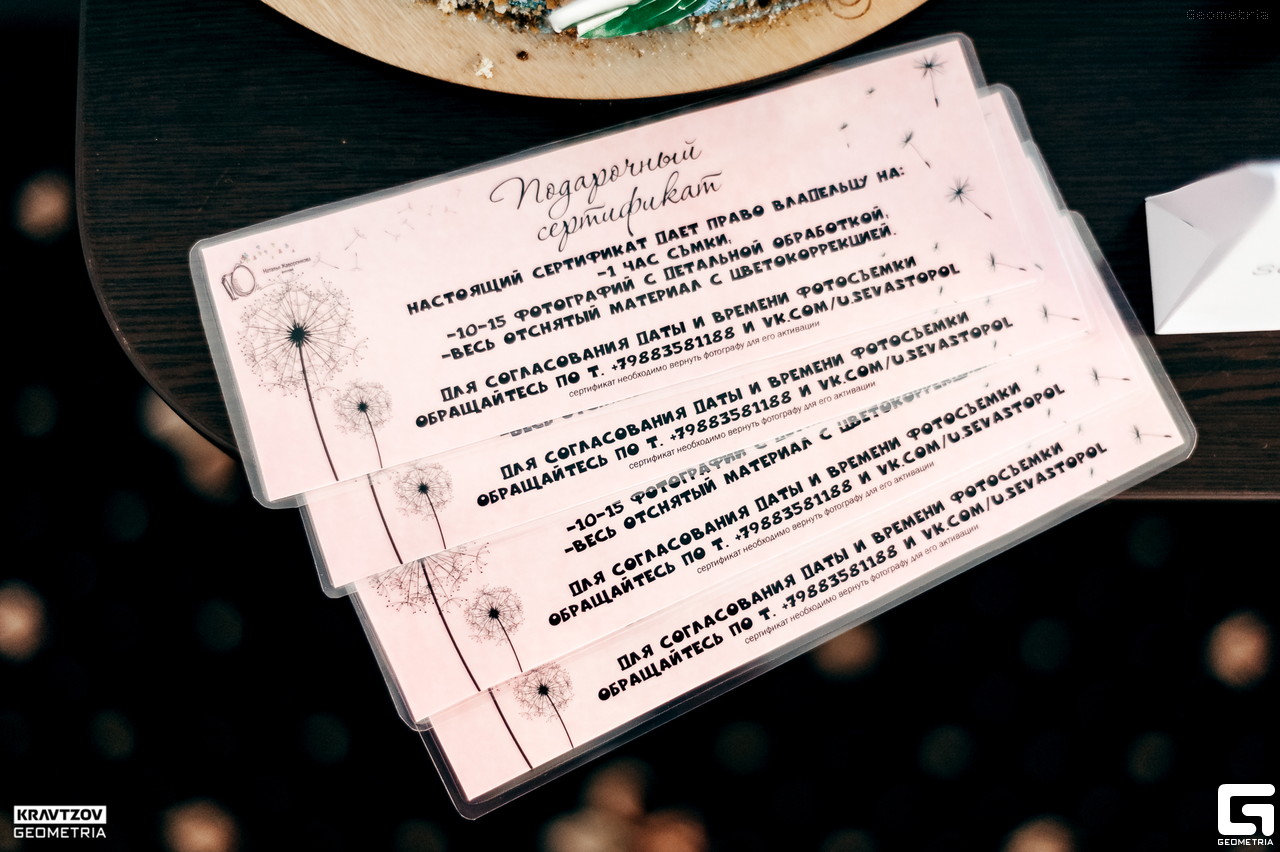 Geometria
Подарочный
сертификат
НАСТОЯЩИЙ СЕРТИФИКАТ ДАЕТ ПРАВО ВЛАДЕЛЬЦУ НА:
-1 ЧАС СЪМКИ,
-10-15 ФОТОГРАФИЙ С ДЕТАЛЬНОЙ ОБРАБОТКОЙ,
-ВЕСЬ ОТСНЯТЫЙ МАТЕРИАЛ С ЦВЕТОКОРРЕКЦИЕЙ.
ДЛЯ СОГЛАСОВАНИЯ ДАТЫ И ВРЕМЕНИ ФОТОСЪЕМКИ
ОБРАЩАЙТЕСЬ ПО Т. +79883581188 И VK.COM/U.SEVASTOPOL
сертификат необходимо вернуть фотографу для его активации
ДЛЯ СОГЛАСОВАНИЯ ДАТЫ И ВРЕМЕНИ ФОТОСЪЕМКИ
ОБРАЩАЙТЕСЬ ПО Т. +79883581188 И VK.COM/U.SEVASTOPOL
сертификат необходимо вернуть фотографу для его активации
-10-15 ФОТОГРАФИЙ С
-ВЕСЬ ОТСНЯТЫЙ МАТЕРИАЛ С ЦВЕТОКОРРЕКЦИЕЙ.
ДЛЯ СОГЛАСОВАНИЯ ДАТЫ И ВРЕМЕНИ ФОТОСЪЕМКИ
ОБРАЩАЙТЕСЬ ПО Т. +79883581188 И VK.COM/U.SEVASTOPOL
сертификат необходимо вернуть фотографу для его активации
ДЛЯ СОГЛАСОВАНИЯ ДАТЫ И ВРЕМЕНИ ФОТОСЪЕМКИ
ОБРАЩАЙТЕСЬ ПО Т. +79883581188 И VK.COM/U.SEVASTOPOL
сертификат необходимо вернуть фотографу для его активации
KRAVTZOV
GEOMETRIA
GEOMETRIA